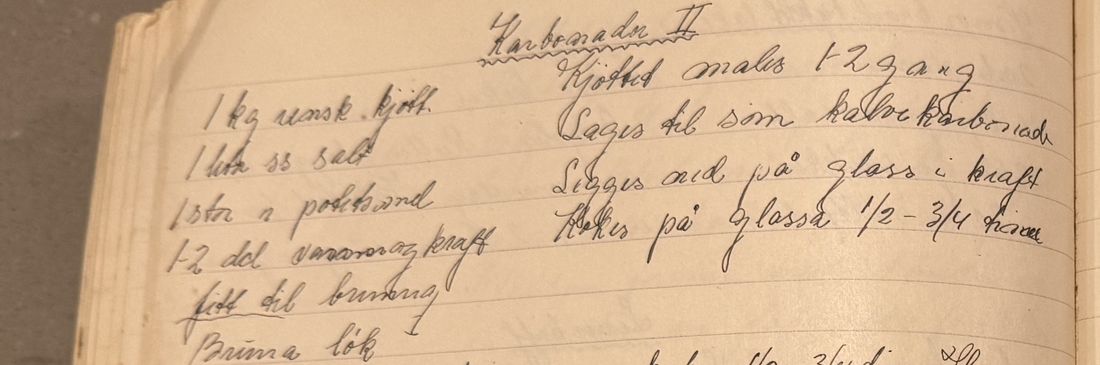 Karbonader II
1 kg rensk. kjött.
1 ss salt
1 potetsmel
1-2 dcl vann og kraft
fett til bruning
Bruna lök
Kjöttet males 1-2 gang
Lages til som kalvekarbonade
Legges ned på glass i kraft
Kokes på glassa 1/2 - 3/4 time